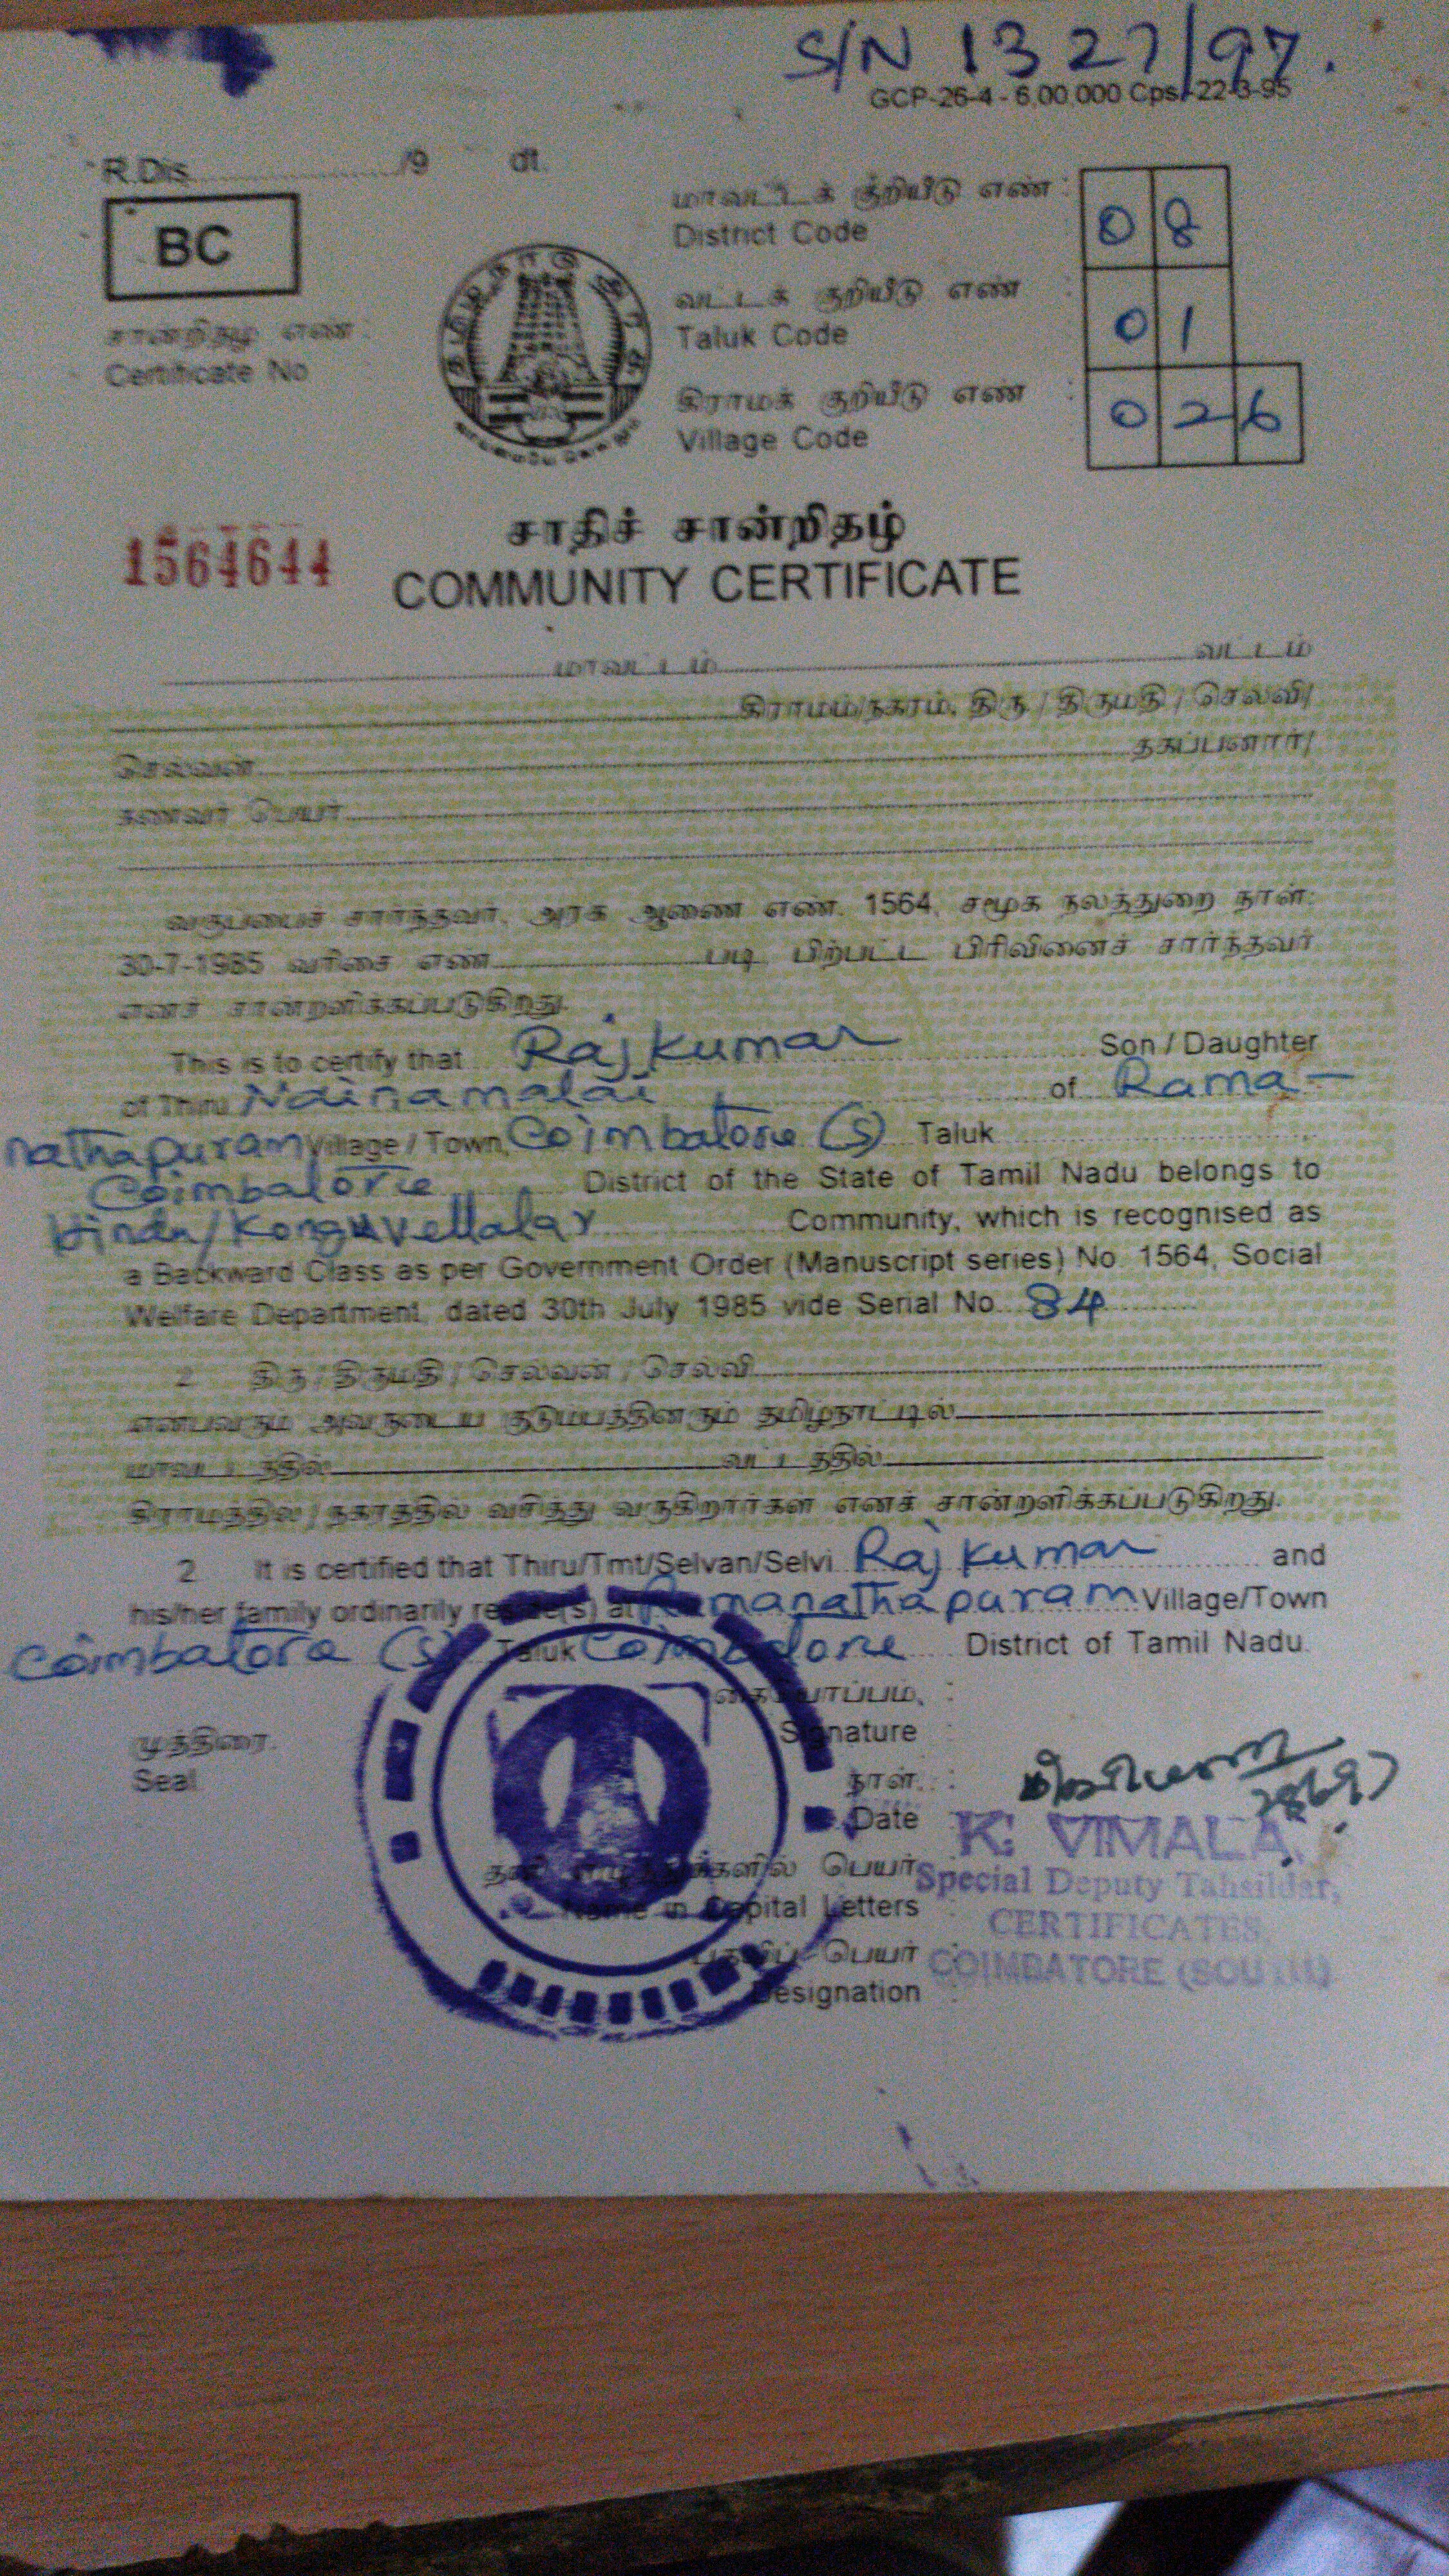 S/N 1327/97.
GCP-26-4 - 6,00,000 Cps.-22-3-95
R.Dis. /9 dt.
BC
மாவட்டக் குறியீடு எண் :
District Code
08
வட்டக் குறியீடு எண் :
Taluk Code
01
கிராமக் குறியீடு எண் :
Village Code
026
சான்றிதழ் எண் :
Certificate No
1564644
சாதிச் சான்றிதழ்
COMMUNITY CERTIFICATE
மாவட்டம் வட்டம்
கிராமம்/நகரம், திரு / திருமதி / செல்வி/
செல்வன் தகப்பனார்/
கணவர் பெயர்
வகுப்பைச் சார்ந்தவர். அரசு ஆணை எண். 1564, சமூக நலத்துறை நாள்:
30-7-1985 வரிசை எண் படி பிற்பட்ட பிரிவினைச் சார்ந்தவர்
எனச் சான்றளிக்கப்படுகிறது.
This is to certify that Rajkumar Son / Daughter
of Thiru Nainamalai of Rama-
nathapuram Village / Town, Coimbatore (S) Taluk
Coimbatore District of the State of Tamil Nadu belongs to
Hindu/Konguvellalar Community, which is recognised as
a Backward Class as per Government Order (Manuscript series) No. 1564, Social
Welfare Department, dated 30th July 1985 vide Serial No. 84
2 திரு / திருமதி / செல்வன் / செல்வி
என்பவரும் அவருடைய குடும்பத்தினரும் தமிழ்நாட்டில்
மாவட்டத்தில் வட்டத்தில்
கிராமத்தில் / நகரத்தில் வசித்து வருகிறார்கள் எனச் சான்றளிக்கப்படுகிறது.
2 It is certified that Thiru/Tmt/Selvan/Selvi Rajkumar and
his/her family ordinarily reside(s) at Ramanathapuram Village/Town
Coimbatore (S) Taluk Coimbatore District of Tamil Nadu.
கையொப்பம். :
Signature
முத்திரை
Seal
நாள். :
Date
K. VIMALA,
Special Deputy Tahsildar,
பெயர்
Name in Capital Letters
CERTIFICATES,
பதவிப் பெயர் :
COIMBATORE (SOUTH)
Designation :